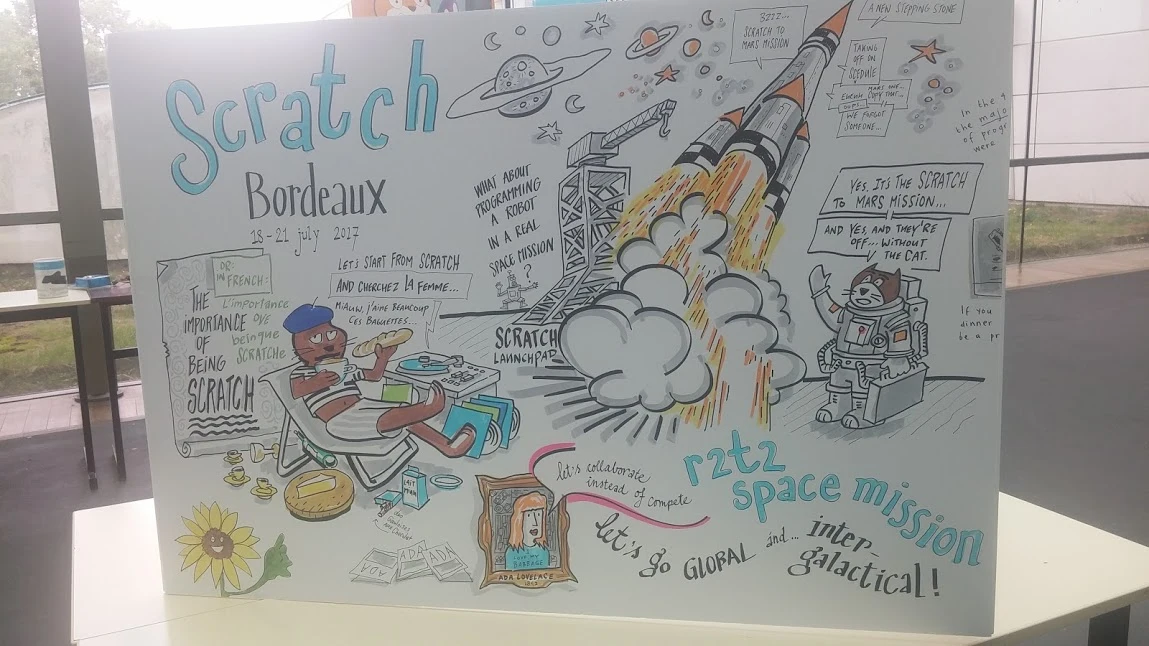 Scratch
Bordeaux
18-21 july 2017
BZZZ...
SCRATCH TO
MARS MISSION
A NEW STEPPING STONE
TAKING
OFF ON
MARS ONE...
COPY THAT...
OOPS...
WE FORGOT
SOMEONE...
In the
the
of
were
WHAT ABOUT
PROGRAMMING
A ROBOT
IN A REAL
SPACE MISSION
?
YES, IT'S THE SCRATCH
TO MARS MISSION...
AND YES, AND THEY'RE
OFF... WITHOUT
THE CAT.
OR:
IN FRENCH:
L'importance
SCRATCHe
THE
IMPORTANCE
OF
BEING
SCRATCH
LET'S START FROM SCRATCH
AND CHERCHEZ LA FEMME...
MIAUW, J'AIME BEAUCOUP
CES BAGUETTES...
SCRATCH
LAUNCHPAD
If you
dinner
be a pr
r2t2
space mission
let's collaborate
instead of compete
let's go GLOBAL and... inter-
galactical!
LAIT
ADA
ADA
ADA
BABBAGE
ADA LOVELACE